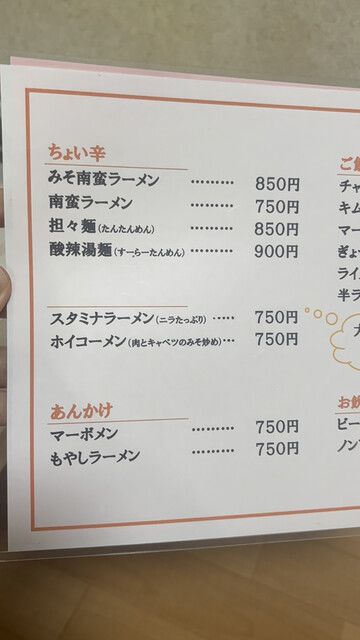 ちょい辛
みそ南蛮ラーメン ········· 850円
南蛮ラーメン ········· 750円
担々麺(たんたんめん) ········· 850円
酸辣湯麺(すーらーたんめん) ········· 900円
スタミナラーメン(ニラたっぷり) ····· 750円
ホイコーメン(肉とキャベツのみそ炒め)··· 750円
あんかけ
マーボメン ········· 750円
もやしラーメン ········· 750円
チャ
キム
マー
ぎょ
ライ
半ラ
お飲
ビー
ノン